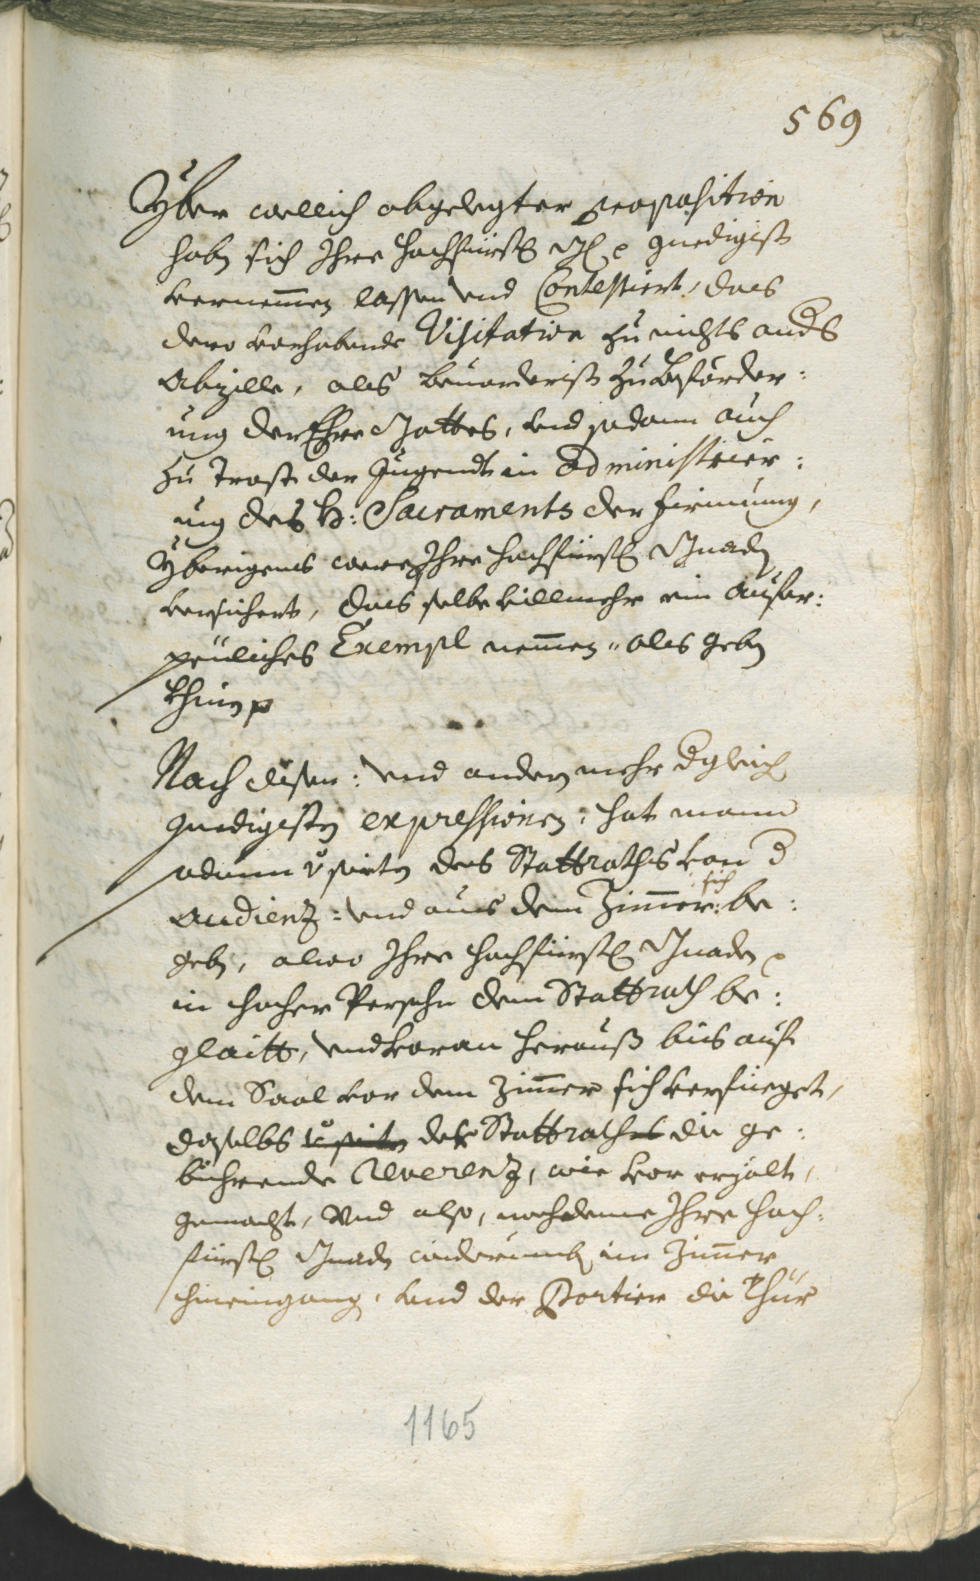 569
Yber wellich abgelegter proposition
habn sich Ihre hochfürstl: Gl: gnedigist
vernemmen lassen vnd Contestiert, das
dero vorhabende Visitation zu nichts ands
abzille, als beuorderist zu beförder:
ung der Ehre Gottes, vnd sodann auch
zu trost der Jugendt in administrier:
ung des H: Sacraments der firmung,
Yberigens weren Ihre hochfürstl: Gnadn
versichert, das selbe villmehr ein aufer:
peuliches Exempl nemmen, als gebn
khünen
Nach disen: vnd andern mehr dgleich
gnedigisten expressionen: hat mann
sodann seiten des Stattraths von d
Audienz: vnd aus dem Zimmer: sich be:
gebn, alwo Ihre hochfürstl: Gnaden
in hocher Persohn dem Stattrath be:
glaitt, vnd voran herauß bis auf
dem Saal vor dem Zimmer sich verfüeget,
daselbs seiten der Stattrathes die ge:
bührende Reverenz, wie vor erzelt,
gemacht, vnd also, nachdeme Ihre hoch:
fürstl: Gnadn widerumb im Zimmer
hineingang, vnd der Portier die Thür
1165